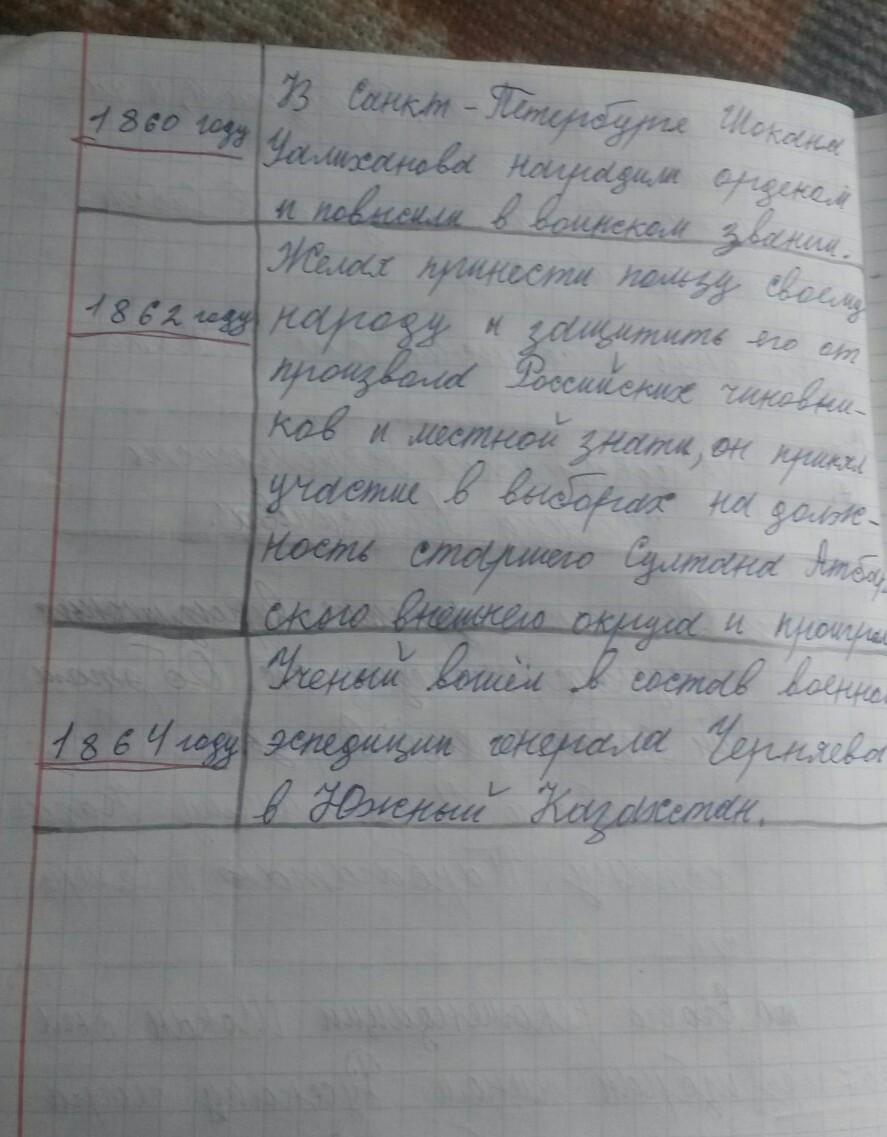 1860 году
В Санкт-Петербурге Шокана
Уалиханова наградили орденом
и повысили в воинском звании.
1862 году
Желая принести пользу своему
народу и защитить его от
произвола Российских чиновни-
ков и местной знати, он принял
участие в выборгах на долж-
ность старшего Султана Атбар
ского внешнего округа и проиграл
1864 году
Ученый вошёл в состав военно
эспедиции генерала Черняева
в Южный Казахстан.